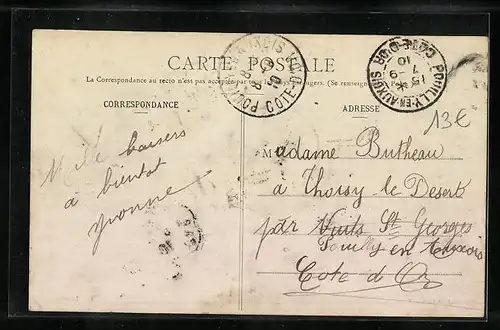 CARTE POSTALE
La Correspondance au recto n'est pas acceptée par tous les pays étrangers. (Se renseigner
CORRESPONDANCE
ADRESSE
POUILLY-EN-AUXOIS
COTE-D'OR
15
7-9
10
POUILLY-EN-AUXOIS
COTE-D'OR
8-9
10
13€
Mille baisers
à bientôt
Yvonne
Madame Butheau
à Thoisy le Desert
par Nuits St Georges
Pouilly en Auxois
Cote d'Or